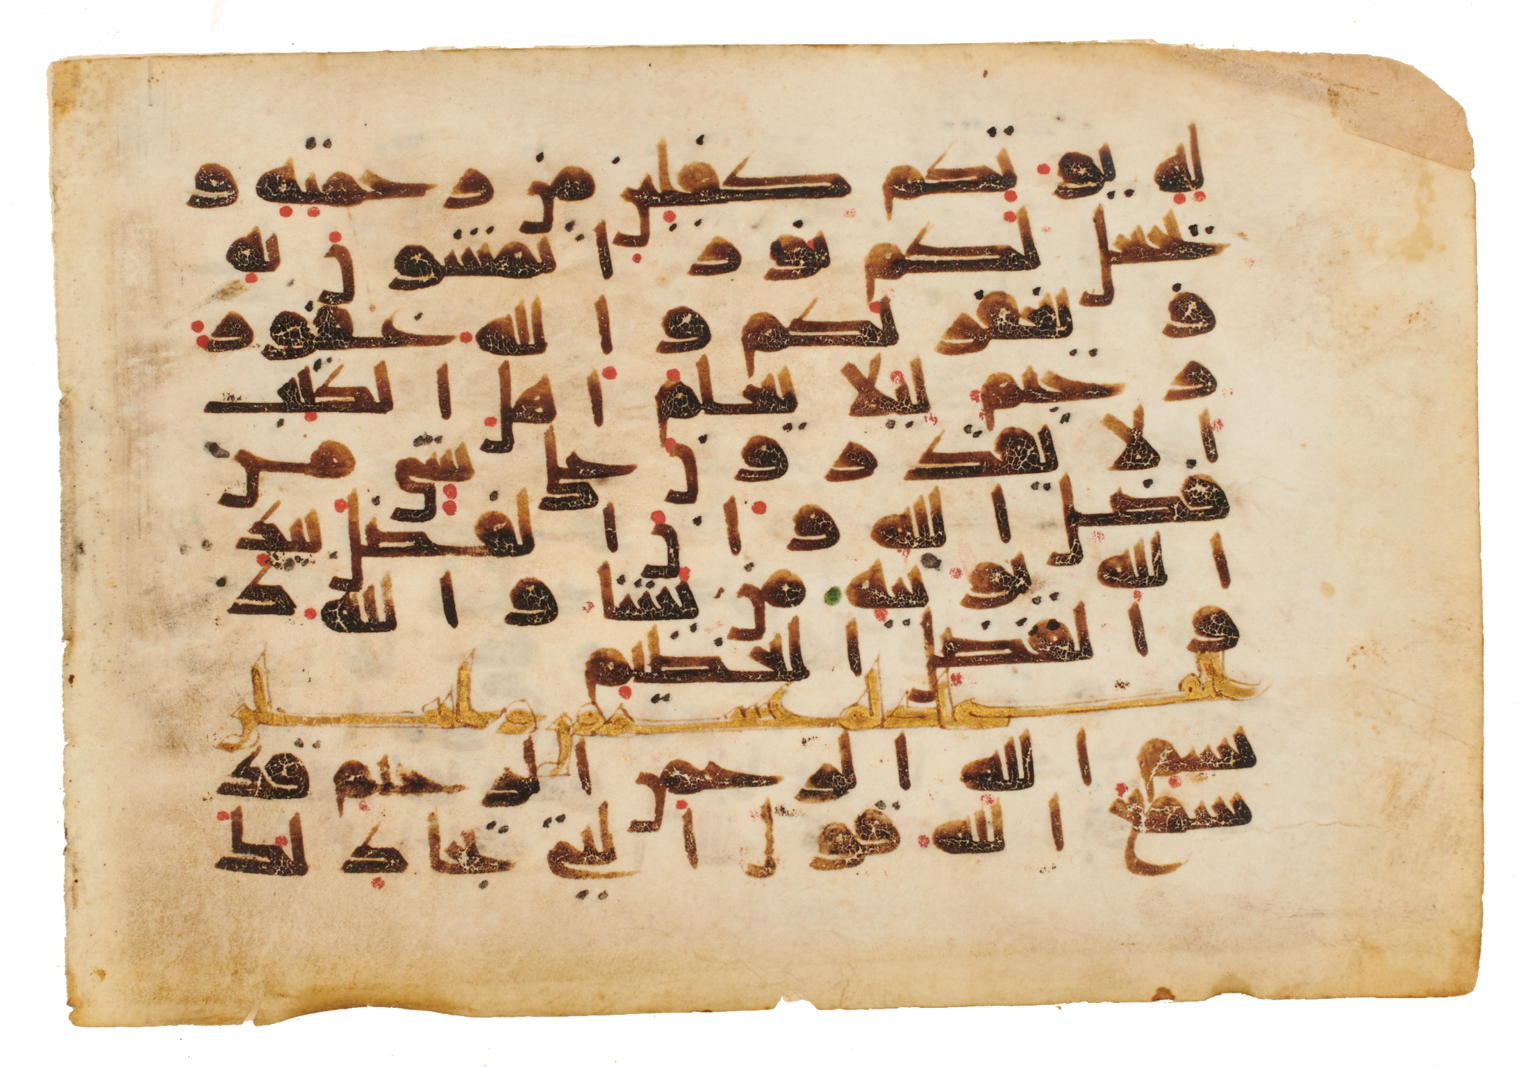 له يوتكم كفلين من رحمته و
يجعل لكم نورا تمشون به
و يغفر لكم و الله غفور
رحيم ليلا يعلم اهل الكتب
الا يقدرون على شي من
فضل الله و ان الفضل بيد
الله يوتيه من يشا و الله ذ
و الفضل العظيم
بسم الله الرحمن الرحيم قد
سمع الله قول التي تجادلك